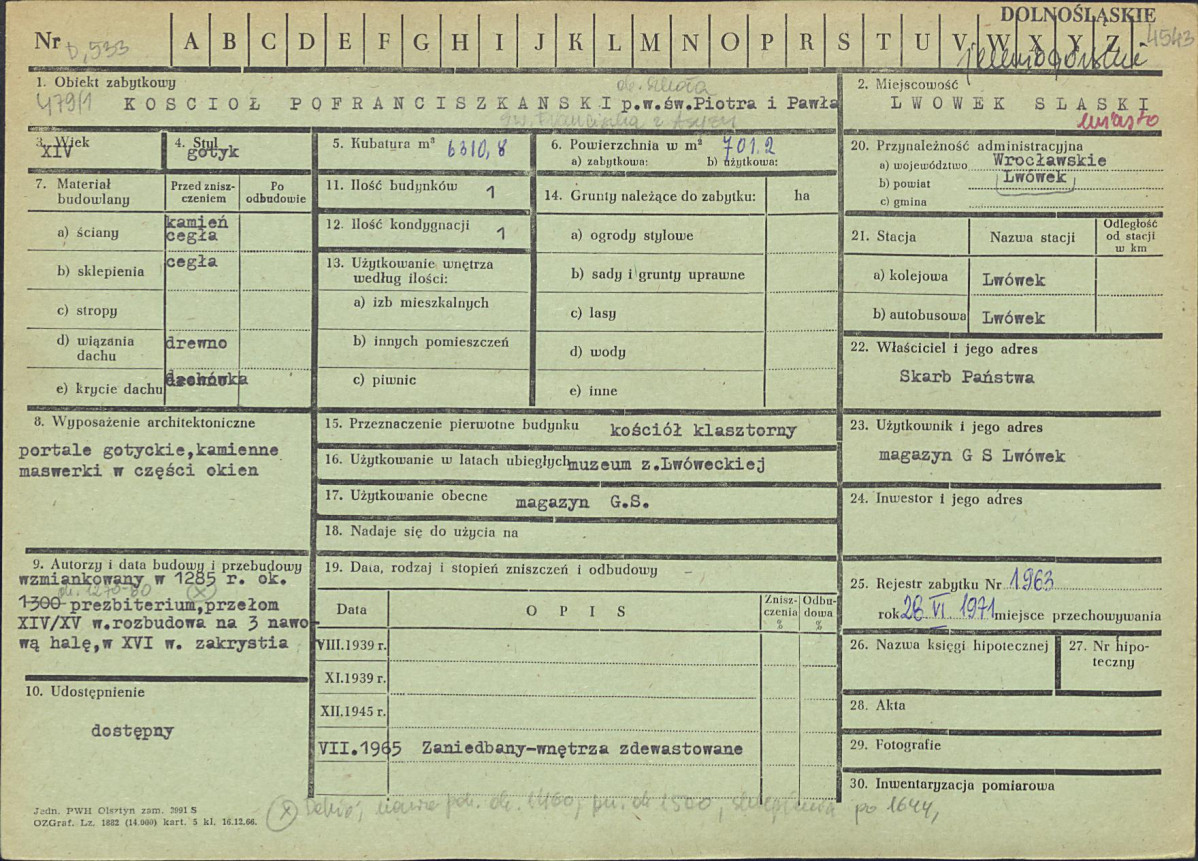 DOLNOŚLĄSKIE
Nr D,533 A B C D E F G H I J K L M N O P R S T U V W X Y Z 4543
jeleniogórskie
1. Obiekt zabytkowy
479/1 KOSCIOŁ POFRANCISZKANSKI p.w.św.Piotra i Pawła
św. Franciszka z Asyżu
2. Miejscowość
LWOWEK SLASKI
miasto
3. Wiek
XIV
4. Styl
gotyk
5. Kubatura m³ 6310,8
6. Powierzchnia w m² 701.2
a) zabytkowa: b) użytkowa:
7. Materiał budowlany
Przed znisz-
czeniem
Po
odbudowie
a) ściany kamień
cegła
b) sklepienia cegła
c) stropy
d) wiązania
dachu drewno
e) krycie dachu dachówka
8. Wyposażenie architektoniczne
portale gotyckie,kamienne
maswerki w części okien
9. Autorzy i data budowy i przebudowy
wzmiankowany w 1285 r. ok.
ok. 1270-80 (x)
1300 prezbiterium,przełom
XIV/XV w.rozbudowa na 3 nawo-
wą halę,w XVI w. zakrystia
10. Udostępnienie
dostępny
11. Ilość budynków 1
12. Ilość kondygnacji 1
13. Użytkowanie wnętrza
według ilości:
a) izb mieszkalnych
b) innych pomieszczeń
c) piwnic
14. Grunty należące do zabytku: ha
a) ogrody stylowe
b) sady i grunty uprawne
c) lasy
d) wody
e) inne
15. Przeznaczenie pierwotne budynku kościół klasztorny
16. Użytkowanie w latach ubiegłych muzeum z.Lwóweckiej
17. Użytkowanie obecne magazyn G.S.
18. Nadaje się do użycia na
19. Data, rodzaj i stopień zniszczeń i odbudowy
Data OPIS Znisz-
czenia
% Odbu-
dowa
%
VIII.1939 r.
XI.1939 r.
XII.1945 r.
VII.1965 Zaniedbany-wnętrza zdewastowane
20. Przynależność administracyjna
a) województwo Wrocławskie
b) powiat Lwówek
c) gmina
21. Stacja Nazwa stacji Odległość
od stacji
w km
a) kolejowa Lwówek
b) autobusowa Lwówek
22. Właściciel i jego adres
Skarb Państwa
23. Użytkownik i jego adres
magazyn G S Lwówek
24. Inwestor i jego adres
25. Rejestr zabytku Nr 1963
rok 26 VI 1971 miejsce przechowywania
26. Nazwa księgi hipotecznej
27. Nr hipo-
teczny
28. Akta
29. Fotografie
30. Inwentaryzacja pomiarowa
Jedn. PWH Olsztyn zam. 2991 S
OZGraf. Lz. 1882 (14.000) kart. 5 kl. 16.12.66.
(x) Dehio; nawa pd. ok. 1460, pn. ok 1500, sklepienia po 1644,